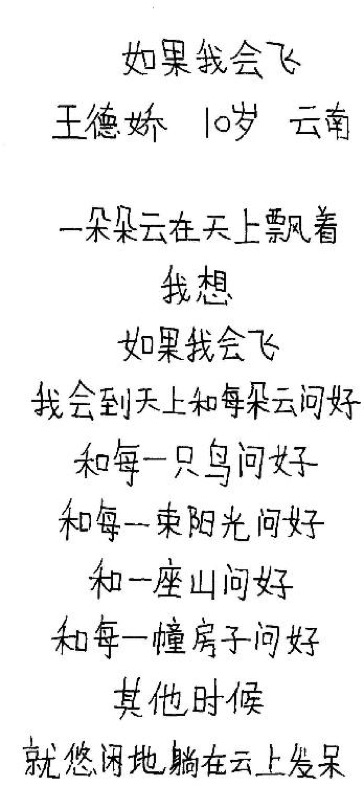 如果我会飞
王德娇 10岁 云南
一朵朵云在天上飘着
我想
如果我会飞
我会到天上和每朵云问好
和每一只鸟问好
和每一束阳光问好
和一座山问好
和每一幢房子问好
其他时候
就悠闲地躺在云上发呆